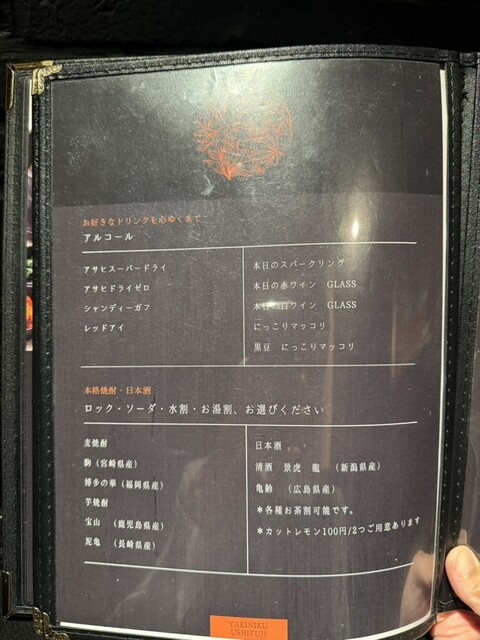 お好きなドリンクを心ゆくまで
アルコール
アサヒスーパードライ
アサヒドライゼロ
シャンディーガフ
レッドアイ
本日のスパークリング
本日の赤ワイン GLASS
本日の白ワイン GLASS
にっこりマッコリ
黒豆 にっこりマッコリ
本格焼酎・日本酒
ロック・ソーダ・水割・お湯割、お選びください
麦焼酎
駒（宮崎県産）
博多の華（福岡県産）
芋焼酎
宝山 （鹿児島県産）
泥亀 （長崎県産）
日本酒
清酒 景虎 龍 （新潟県産）
亀齢 （広島県産）
＊各種お茶割可能です。
＊カットレモン100円/2つご用意あります
YAKINIKU
USHIFUJI